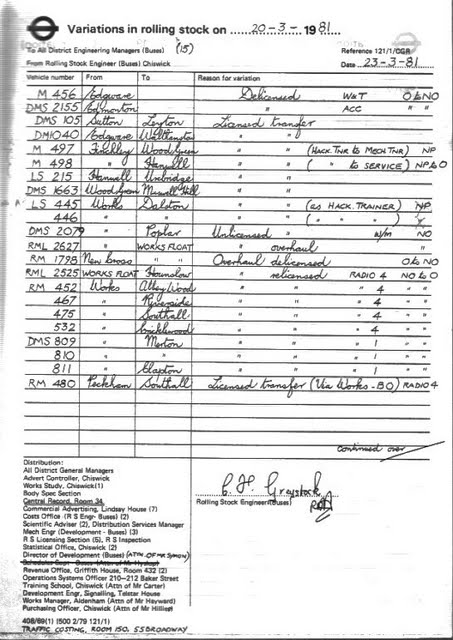 Variations in rolling stock on 20-3-1981
To All District Engineering Managers (Buses) (15) Reference 121/1/CGR
From Rolling Stock Engineer (Buses) Chiswick Date 23-3-81
Vehicle number From To Reason for variation
M 456 Edgware Delicensed W&T O to NO
DMS 2155 Edmonton " ACC " "
DMS 105 Sutton Leyton Licensed transfer
DM1040 Edgware Walthamstow " "
M 497 Finchley Wood Green " " (Hack. Tnr to Mech Tnr) NP
M 498 " Hanwell " " ( " to SERVICE) NP to O
LS 215 Hanwell Uxbridge " "
DMS 1663 Wood Green Muswell Hill " "
LS 445 Works Dalston " " (as HACK. TRAINER) NP
446 " " " " ( " " )
DMS 2079 " Poplar Unlicensed " w/m NO
RML 2627 " WORKS FLOAT " overhaul "
RM 1798 New Cross " Overhaul delicensed O to NO
RML 2525 WORKS FLOAT Hounslow " relicensed RADIO 4 NO to O
RM 452 Works Abbey Wood " " " 4 " "
467 " Riverside " " " 4 " "
475 " Southall " " " 4 " "
532 " Cricklewood " " " 4 " "
DMS 809 " Merton " " " 1 " "
810 " " " " " 1 " "
811 " Clapton " " " 1 " "
RM 480 Peckham Southall Licensed transfer (Via Works - BO) RADIO 4
Continued over
Distribution:
All District General Managers
Advert Controller, Chiswick
Works Study, Chiswick(1)
Body Spec Section
Central Record, Room 34,
Commercial Advertising, Lindsay House (7)
Costs Office (R S Engr- Buses) (2)
Scientific Adviser (2), Distribution Services Manager
Mech Engr (Development - Buses) (3)
R S Licensing Section (5), R S Inspection
Statistical Office, Chiswick (2)
Director of Development (Buses) (ATTN. OF MR SYMON)
Schedules Dept - Buses (Attn of Mr Hyslop)
Revenue Office, Griffith House, Room 432 (2)
Operations Systems Officer 210-212 Baker Street
Training School, Chiswick (Attn of Mr Carter)
Development Engr, Signalling, Telstar House
Works Manager, Aldenham (Attn of Mr Hayward)
Purchasing Officer, Chiswick (Attn of Mr Hillier)
C H Graystock
Rolling Stock Engineer (Buses)
408/69(1) (500 2/79 121/1)
TRAFFIC COSTING, ROOM 150, 55 BROADWAY